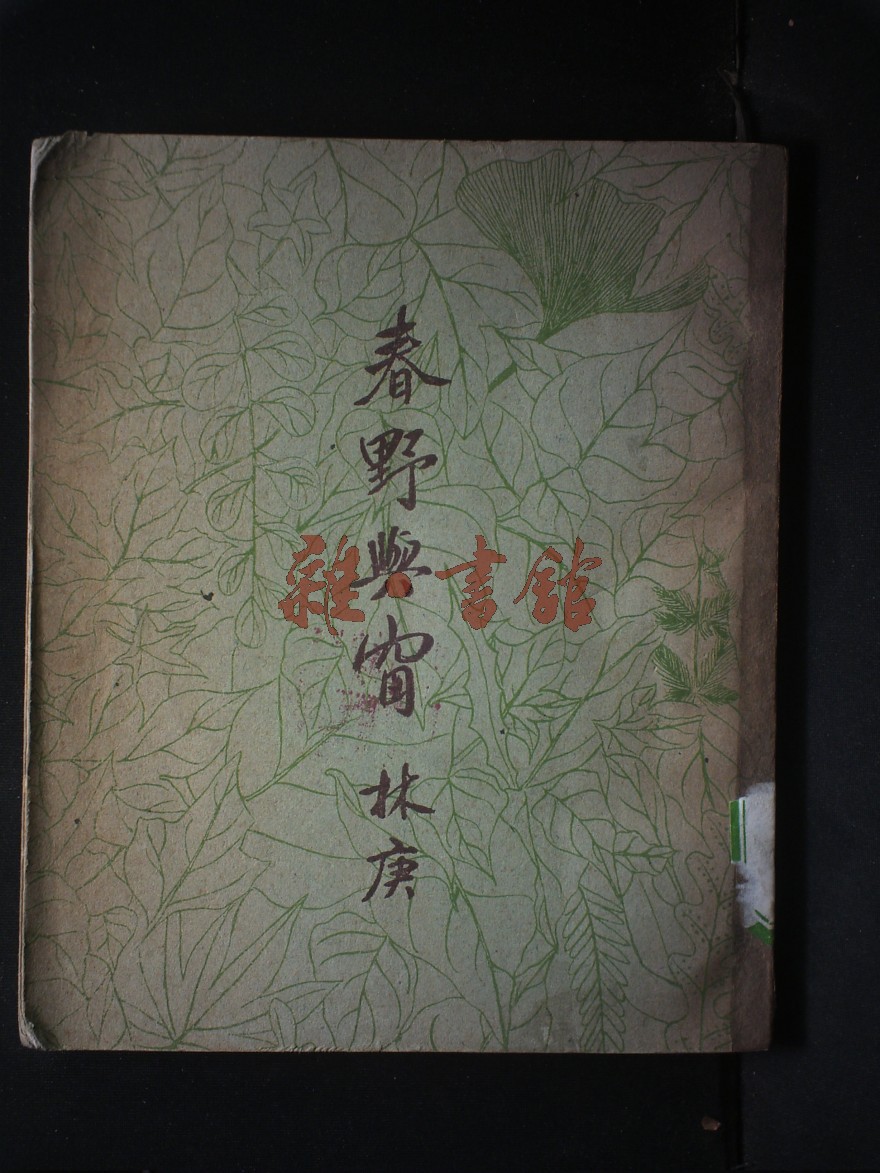 春野與窗
林庚
雜·書館